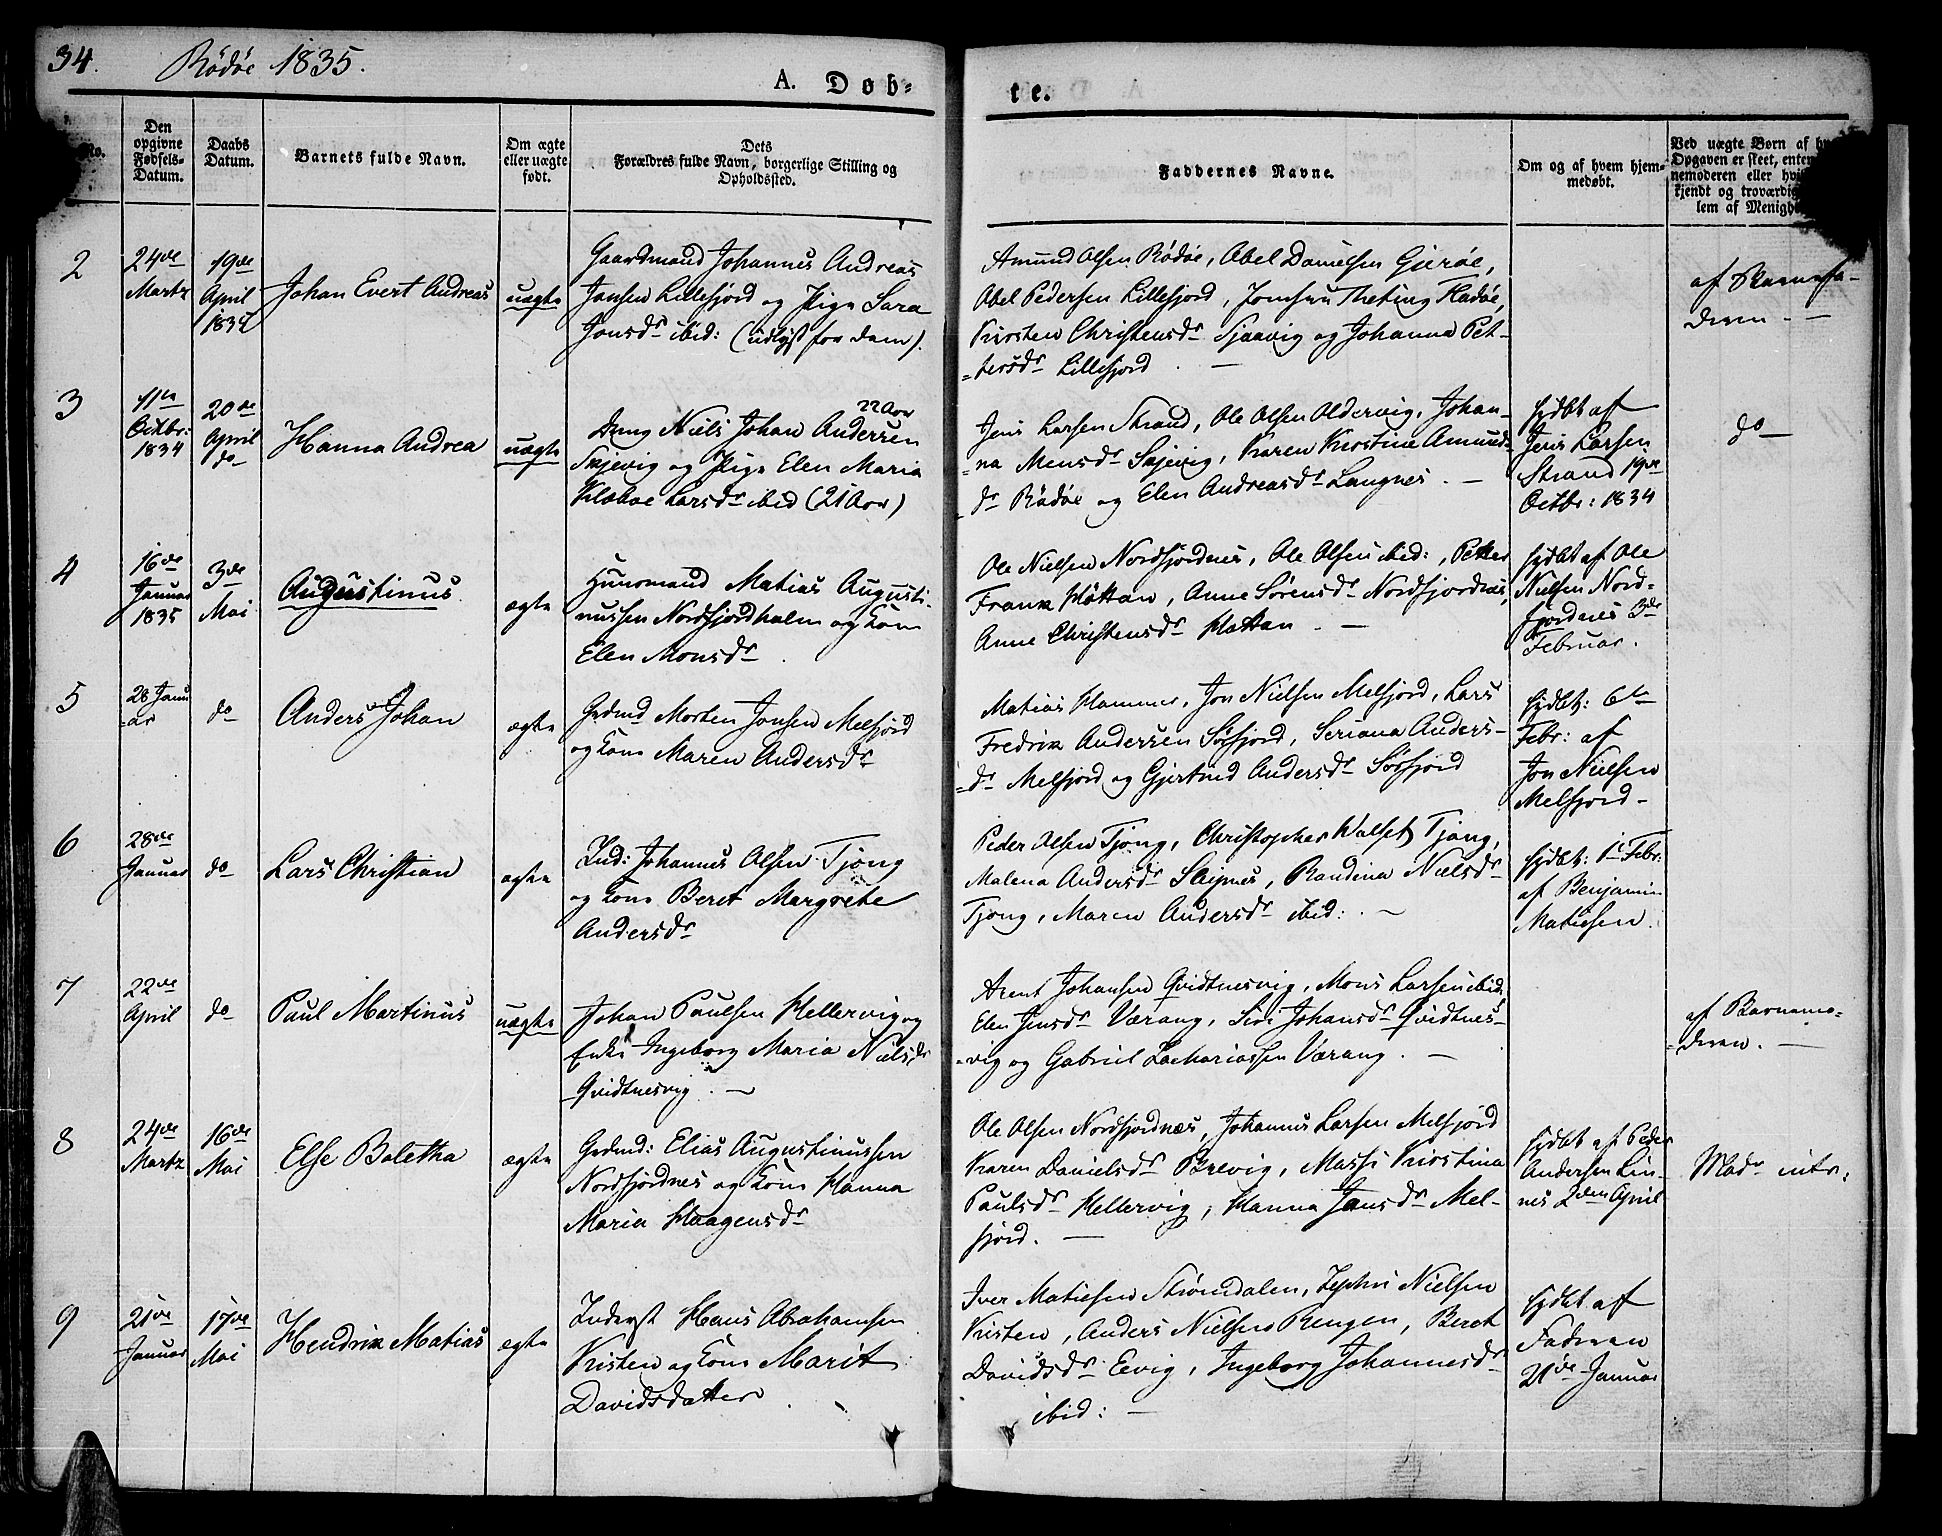 34. Rödöe 1835.
A. Døb-
te.
No.
Den
opgivne
Fødsels-
Datum.
Daabs
Datum.
Barnets fulde Navn.
Om ægte
eller uægte
født.
Dets
Forældres fulde Navn, borgerlige Stilling og
Opholdssted.
Faddernes Navne.
Om og af hvem hjem-
medøbt.
Ved uægte Børn af
Opgaven er skeet, enten
nemoderen eller
kjendt og troværdig
lem af Menigh
2
24de
Martz
19de
April
1835
Johan Evert Andreas
uægte
Gaardmand Johannes Andreas
Jonsen Lillefjord og Pige Sara
Jonsdr ibid: (udlyst for dem).
Amund Olsen Rödöe, Abel Danielsen Gjeröe,
Abel Pedersen Lillefjord, Theting Flødøe,
Kirsten Christensdr Sjaavig og Johanna Pet-
=tersdr Lillefjord. —
af Barnefa-
deren. —
3
11te
Octbr:
1834
20de
April
do
Hanna Andrea
uægte
22 Aar
Dreng Niels Johan Andersen
Skjevig og Pige Elen Maria
Klæboe Larsdr ibid (21 Aar)
Jens Larsen Strand, Ole Olsen Oldervig, Johan-
=na Monsdr Skjevig, Karen Kirstine Amund-
=dr Rödöe og Elen Andreasdr Langnes. —
hjdbt af
Jens Larsen
Strand 19de
Octbr: 1834
do —
4
16de
Januar
1835
3de
Mai
Augustinus
ægte
Huusmand Matias Augusti-
nussen Nordfjordholm og Kone
Elen Monsdr.
Ole Nielsen Nordfjordnes, Ole Olsen ibid:, Petter
Frank Hattan, Anne Sörensdr Nordfjordnes,
Anne Christensdr Hattan. —
hjdbt af Ole
Nielsen Nord-
fjordnes 3de
Februar.
5
28 Janu
=ar
do
Anders Johan
ægte
Grdmd Morten Jonsen Melfjord
og Kone Maren Andersdr
Matias Hammer, Jon Nielsen Melfjord, Lars
Fredrik Andersen Sörfjord, Seriana Anders-
=dr Melfjord og Gjertrud Andersdr Sörfjord
hjdbt: 6te
Febr: af
Jon Nielsen
Melfjord-
6
28de
Januar
do
Lars Christian
ægte
Ind: Johannes Olsen Tjong
og Kone Beret Margrete
Andersdr
Peder Olsen Tjong, Christopher Tjong,
Malena Andersdr Skjnes, Randina Nielsdr
Tjong, Maren Andersdr ibid: . —
hjdbt: 1te Febr:
af Benjamin
Matiesen.
7
22de
April
do
Paul Martinus
uægte
Johan Paulsen Hellervig og
Enke Ingeborg Maria Nielsdr
Qvidtnesvig. —
Arent Johansen Qvidtnesvig, Mons Larsen ibid,
Elen Jensdr Værang, Siri Johansdr Qvidtnes-
=vig og Gabriel Zachariassen Værang. —
af Barnemo-
=deren. —
8
24de
Martz
16de
Mai
Else Boletha
ægte
Grdmd: Elias Augustinussen
Nordfjordnes og Kone Hanna
Maria Haagensdr
Ole Olsen Nordfjordnæs, Johannes Larsen Melfjord
Karen Danielsdr Brevig, Massi Kirstina
Paulsdr Hellervig, Hanna Jonsdr Mel-
fjord. —
hjdbt af Peder
Andersen Lin-
nes 2den April
Modr intr:
9
21de
Januar
17de
Mai
Hendrik Matias
ægte
Inderst Hans Abrahamsen
Kristen og Kone Marit
Davidsdatter
Iver Matiesen Strömdalen, Zephri Nielsen
Kristen, Anders Nielsen Rengen, Beret
Davidsdr Eevig, Ingeborg Johannesdr
ibid: —
hjdbt af
Faderen
21de Januar